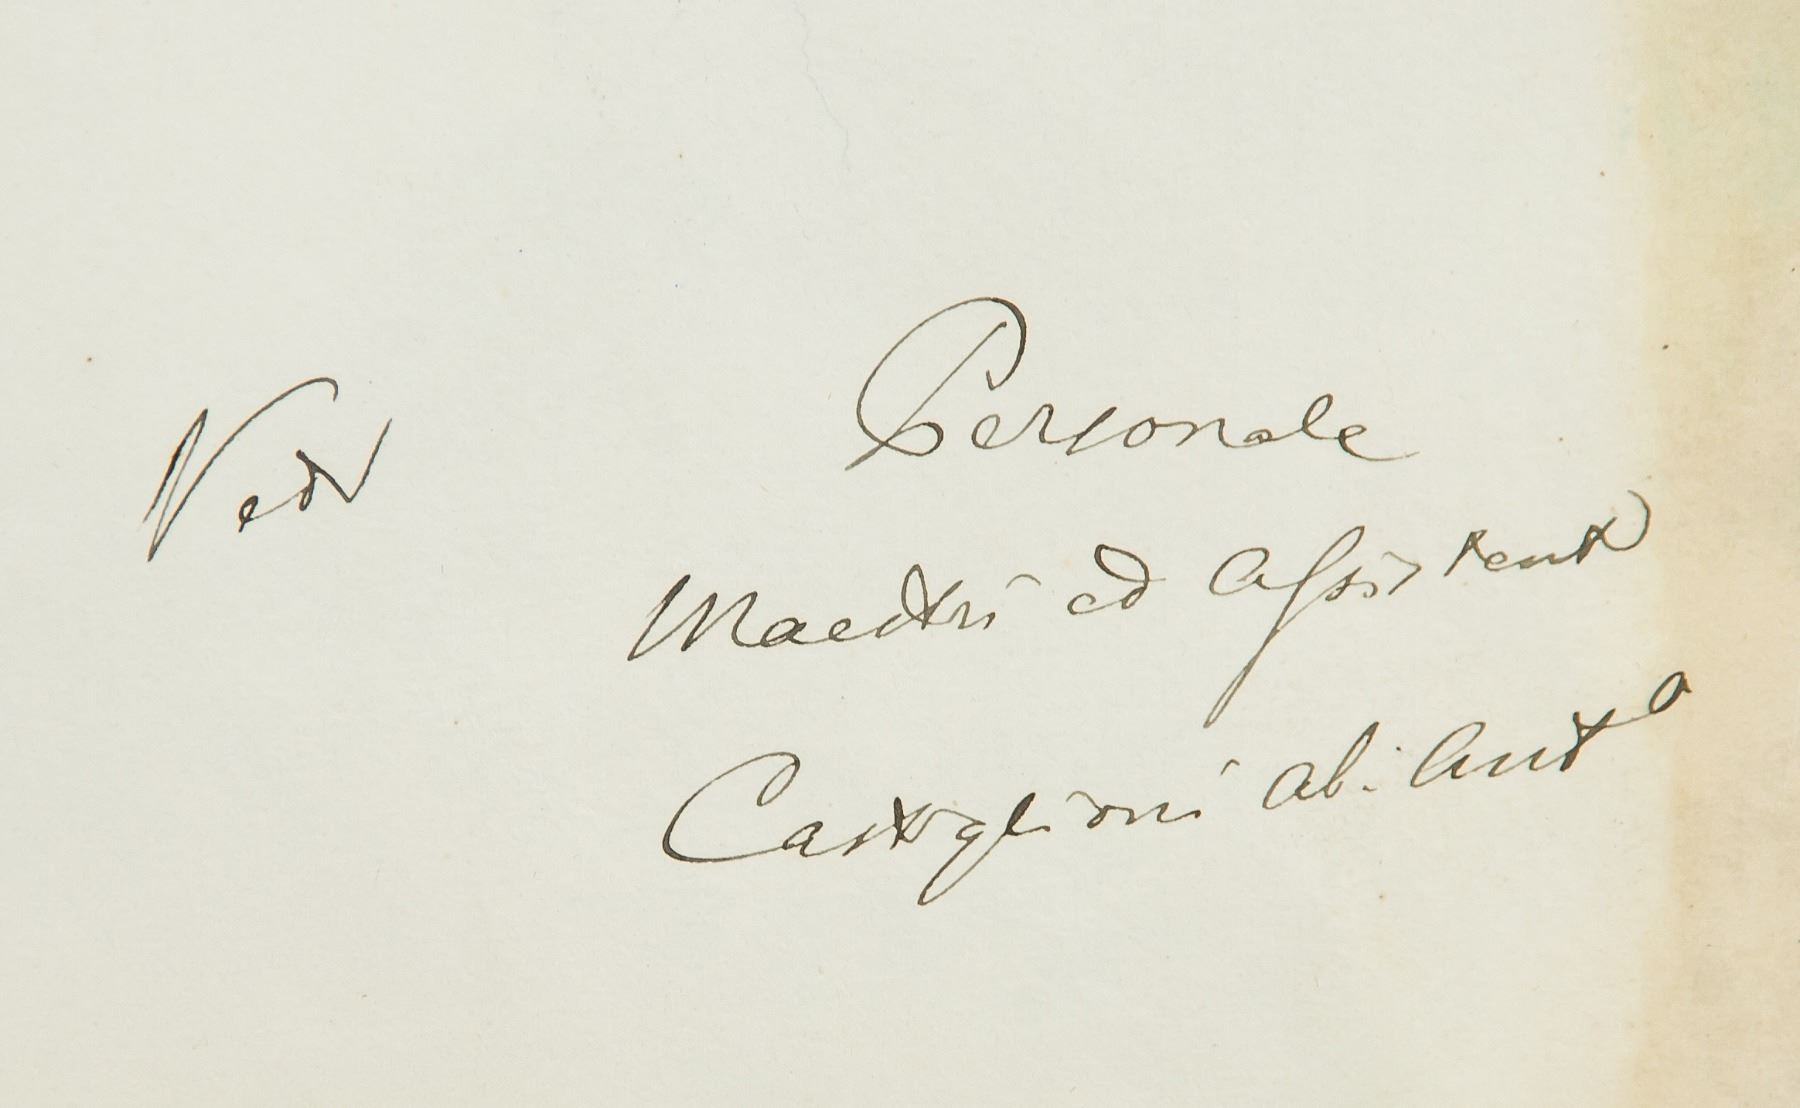 Vedi
Personale
Maestri ed Assistenti
Castiglioni ab. Anto